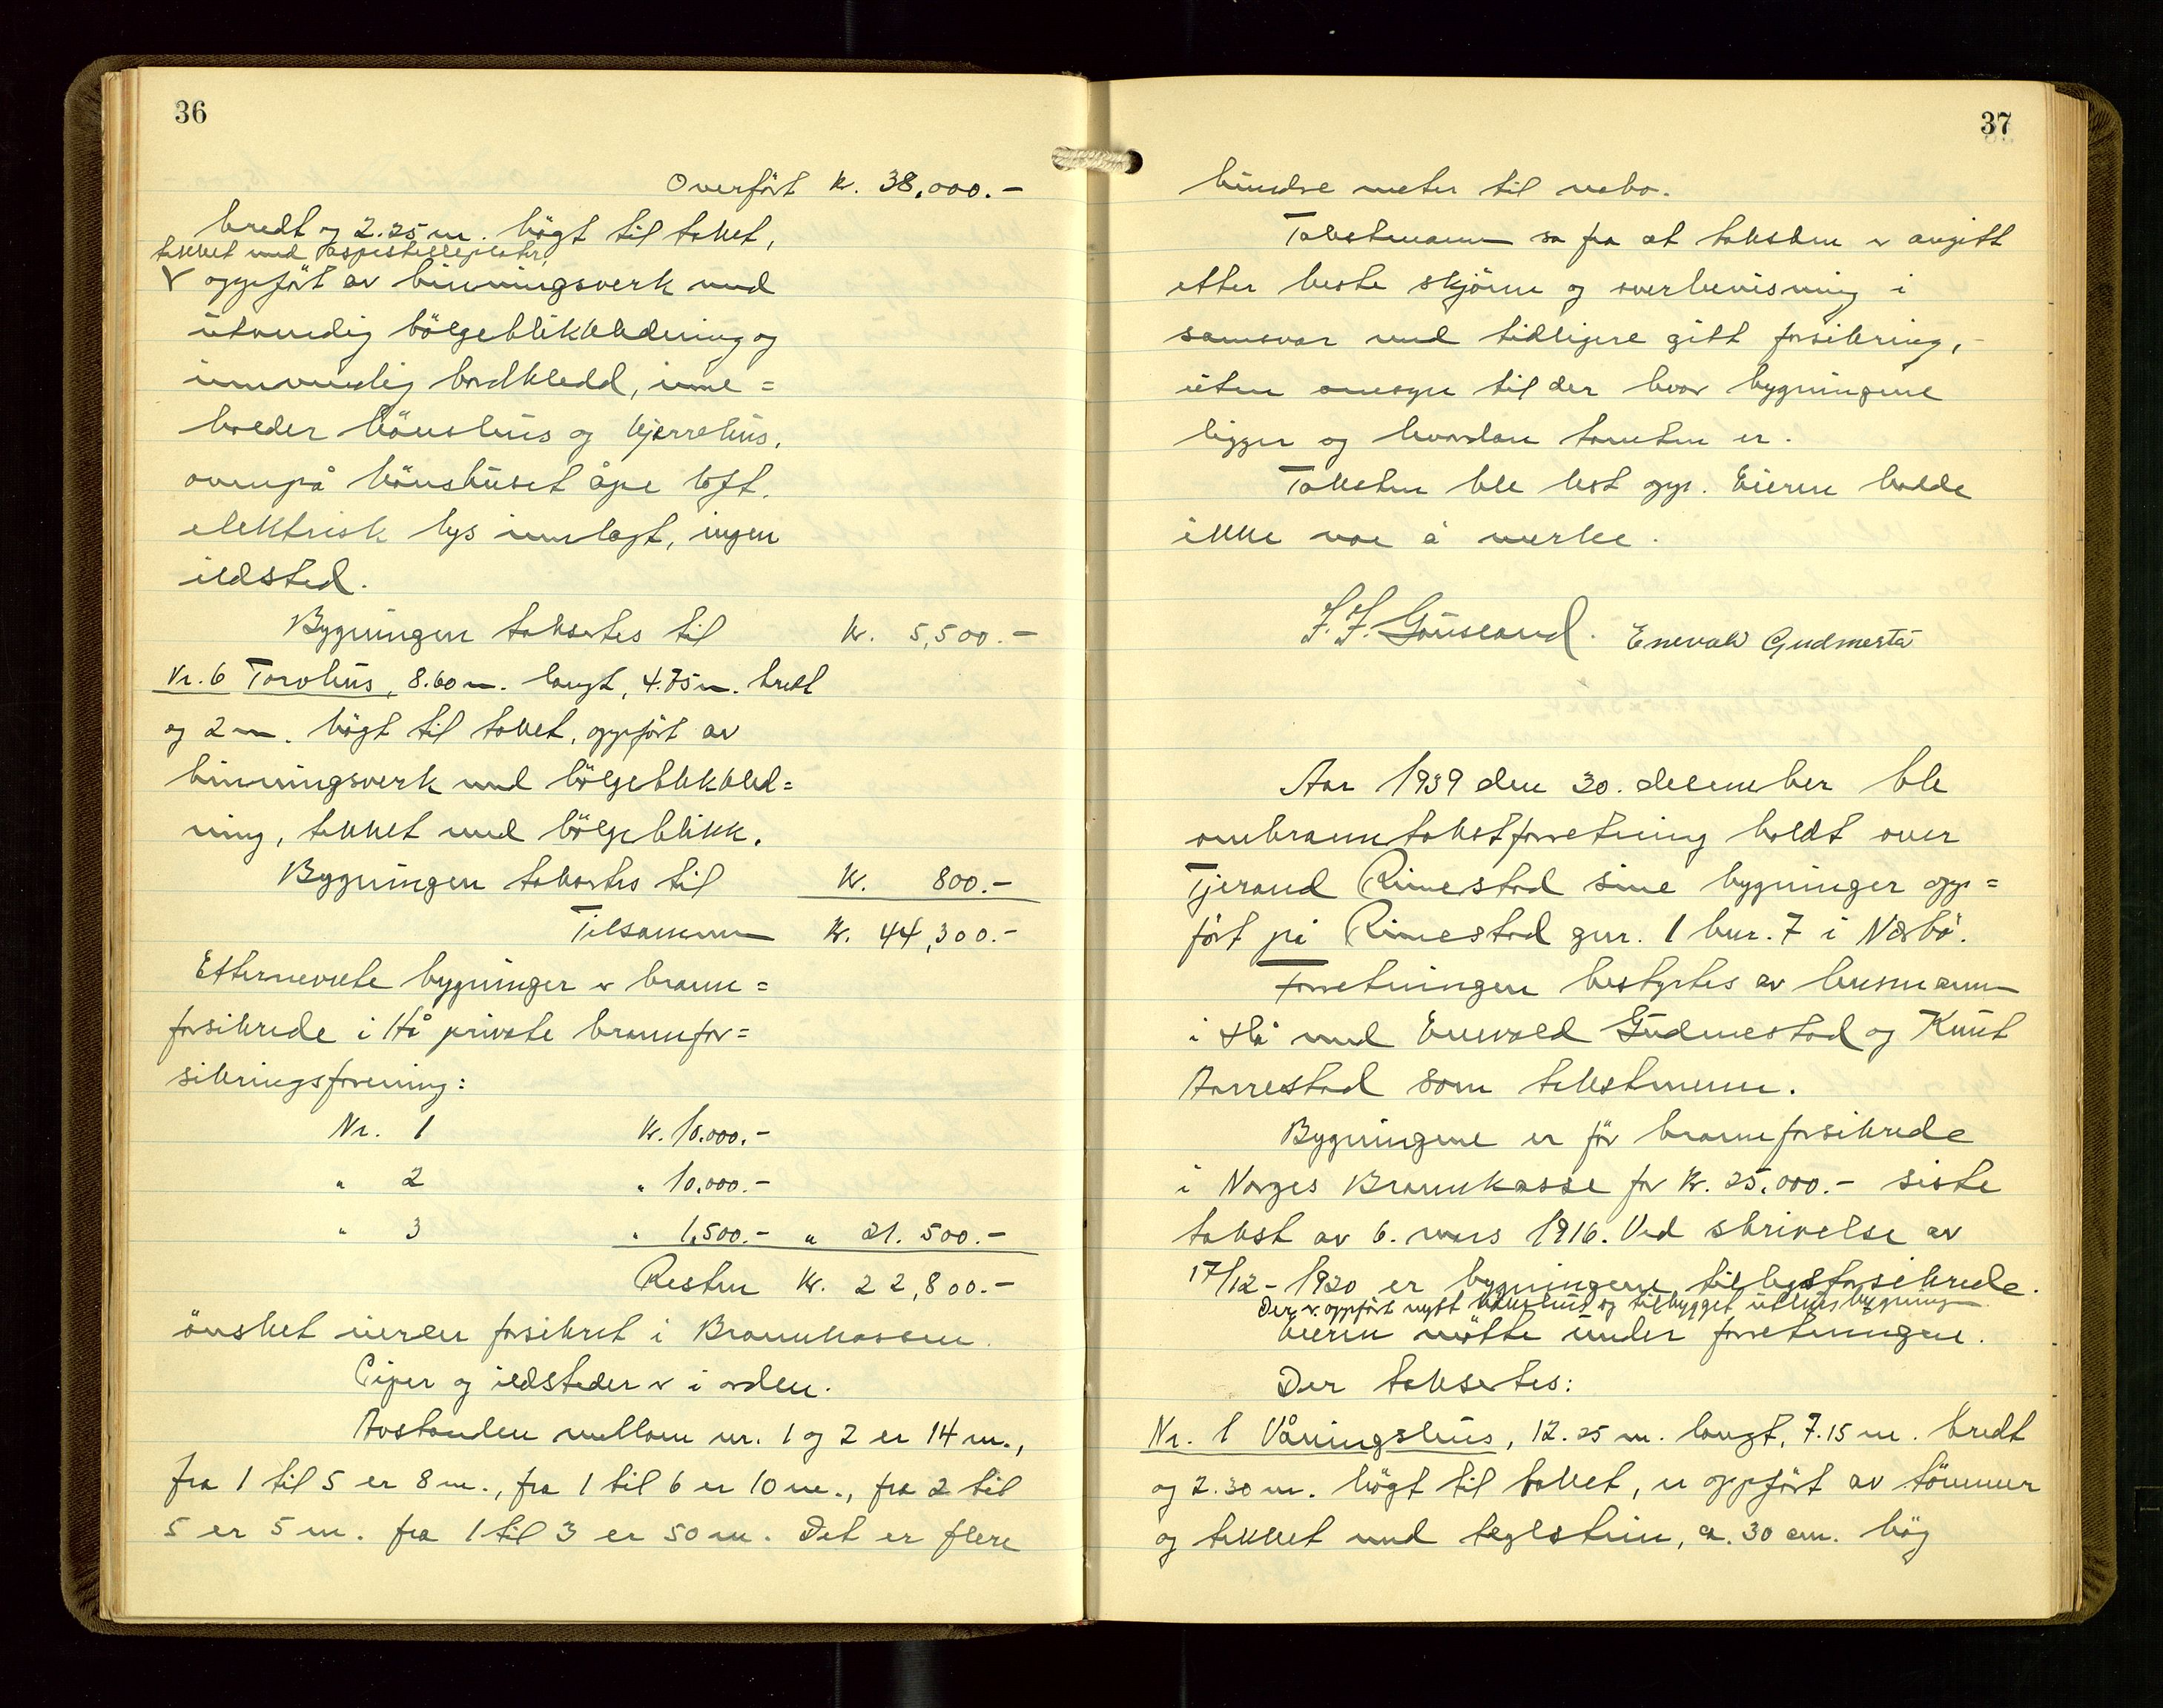 36
Overført kr. 38,000.-
bredt og 2.25 m. högt til taket,
tekket med aspestilleplater,
V oppfört av binningsverk med
utvendig bölgeblikkledning og
innvendig bordkledd, inne=
holder hönshus og kjerrehus,
ovenpå hönshuset åpe loft,
elektrisk lys innlagt, ingen
ildsted.
Bygningen taksertes til kr. 5,500.-
Nr. 6 Torvhus, 8.60 m. langt, 4.75 m. bredt
og 2 m. högt til taket, oppfört av
binningsverk med bölgeblikkled=
ning, tekket med bölgeblikk.
Bygningen taksertes til kr. 800.-
Tilsammen kr. 44,300.-
Etternevnte bygninger er brann=
forsikrede i Hå private brannfor=
sikringsforening:
Nr. 1 kr. 10.000.-
" 2 " 10.000.-
" 3 " 1,500.- " 21.500.-
Resten kr. 22,800.-
önsket eieren forsikret i Brannkassen.
Piper og ildsteder er i orden.
Avstanden mellom nr. 1 og 2 er 14 m.,
fra 1 til 5 er 8 m., fra 1 til 6 er 10 m., fra 2 til
5 er 5 m. fra 1 til 3 er 50 m. Det er flere
37
hundre meter til nabo.
Takstmenn sa fra at taksten er avgitt
etter beste skjönn og overbevisning i
samsvar med tidligere gitt forsikring,
uten omsyn til der hvor bygningene
ligger og hvordan tomten er.
Taksten ble lest opp. Eieren hadde
ikke noe å merke.
J. J. Gausland. Enevald Gudmestad
Aar 1939 den 30. desember ble
ombranntakstforretning holdt over
Tjerand Rimestad sine bygninger opp=
fört på Rimestad gnr. 1 bnr. 7 i Nærbö.
Forretningen bestyrtes av lensmann
i Hå med Enevald Gudmestad og Knut
Aarrestad som takstmenn.
Bygningene er för brannforsikrede
i Norges Brannkasse for kr. 25.000.- siste
takst av 6. mars 1916. Ved skrivelse av
17/12 - 1920 er bygningene tilleggsforsikrede.
Der er oppfört nytt hönshus og tilbygget uthusbygning
Eieren mötte under forretningen.
Der taksertes:
Nr. 1 Våningshus, 12.25 m. langt, 7.15 m. bredt
og 2.30 m. högt til taket, er oppfört av tömmer
og tekket med teglstein, ca. 30 cm. hög